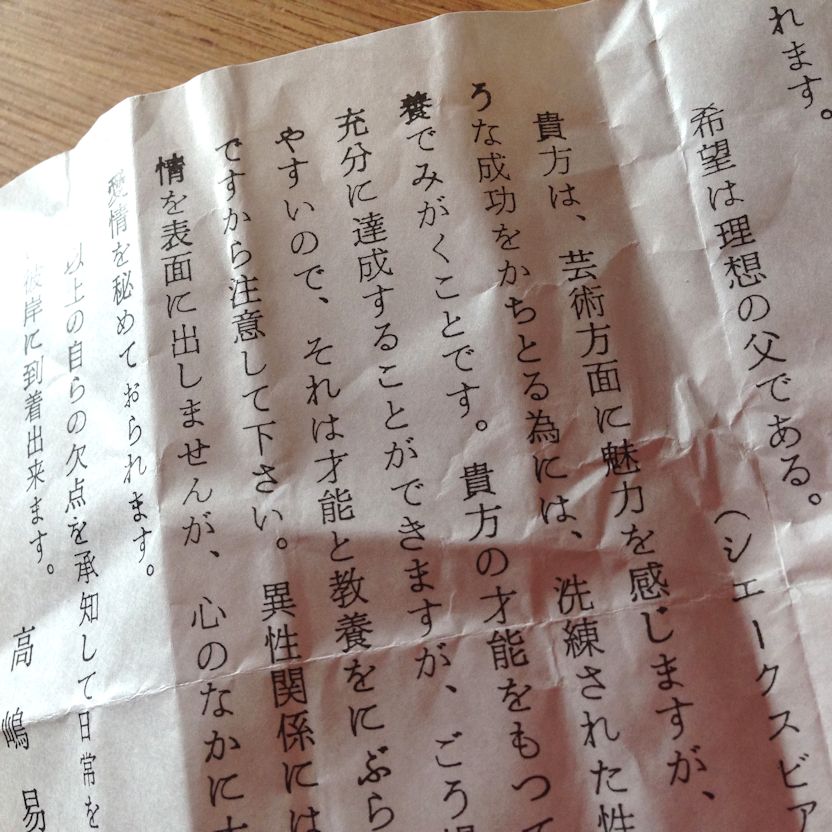 れます。
希望は理想の父である。
(シェークスピア
貴方は、芸術方面に魅力を感じますが、
うな成功をかちとる為には、洗練された性
養でみがくことです。貴方の才能をもつて
充分に達成することができますが、ごろ
やすいので、それは才能と教養をにぶら
ですから注意して下さい。異性関係には
情を表面に出しませんが、心のなかに
愛情を秘めておられます。
以上の自らの欠点を承知して日常を
彼岸に到着出来ます。
高嶋易